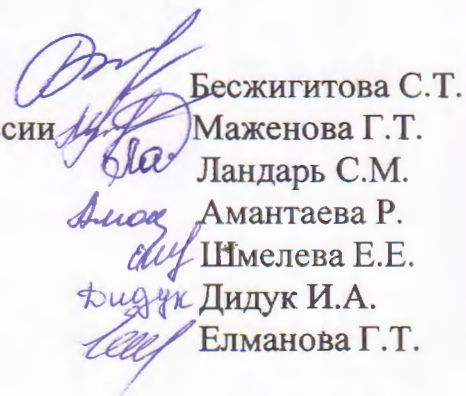 Бесжигитова С.Т.
ссии Маженова Г.Т.
Ландарь С.М.
Амантаева Р.
Шмелева Е.Е.
Дидук Дидук И.А.
Елманова Г.Т.